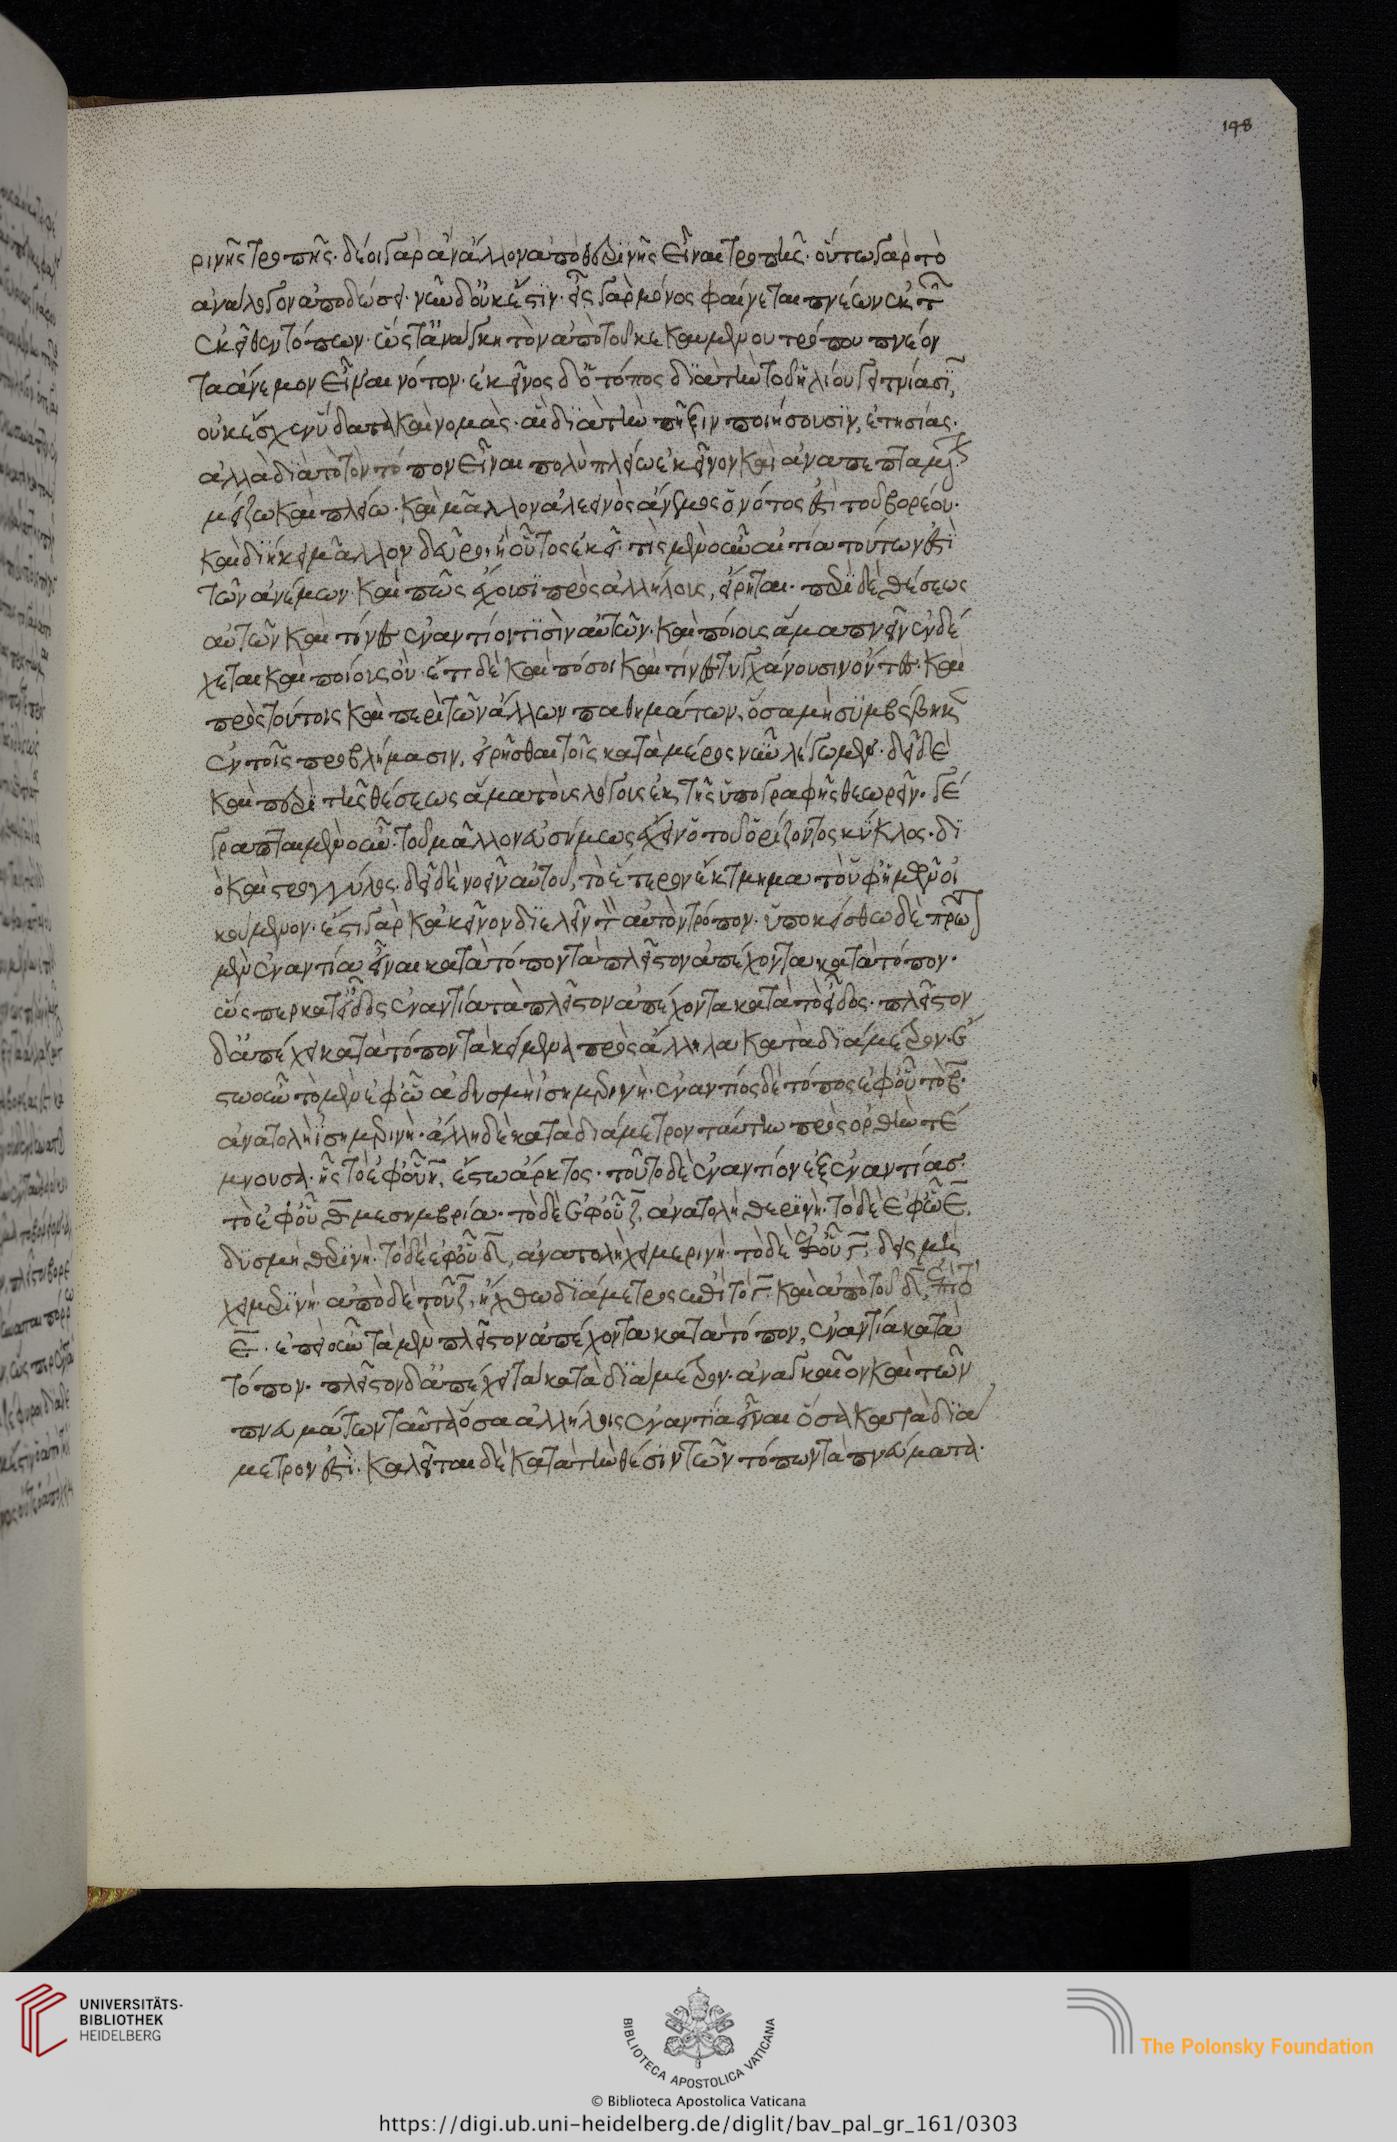 ρινῆς τροπῆς· δέοι γὰρ ἀν ἄλλον ἀπὸ θερϊνῆς εἶναι τροπῆς· οὕτω γὰρ τὸ
ἀνάλογον ἀποδώσει· νῦν δ' οὐκ ἔστϊν· εἷς γὰρ μόνος φαίνεται πνέων ἐκ τῶν
ἐκεῖθεν τόπων· ὥστ' ἀνάγκη τὸν ἀπὸ τοῦ κεκαυμένου τρόπου πνέον
τα ἄνεμον εἶναι νότον· ἐκεῖνος δ' ὁ τόπος δϊὰ τὴν τοῦ ἡλίου γειτνίασϊν,
οὐκ ἔσχεν ὕδατα καὶ νομὰς· αἳ δϊὰ τὴν πῆξιν ποιήσουσϊν, ἐτησίας·
ἀλλὰ δϊὰ τὸ τὸν τόπον εἶναι πολὺ πλείω ἐκεῖνον καὶ ἀναπεπταμένον
μείζω καὶ πλείω· καὶ μᾶλλον ἀλεεινὸς ἄνεμος ὁ νότος ἐστὶ τοῦ βορέου·
καὶ δϊήκει μᾶλλον δεῦρο ἢ οὗτος ἐκεῖ· τίς μὲν οὖν αἰτία τούτων ἐστὶ
τῶν ἀνέμων· καὶ πῶς ἔχουσϊ πρὸς ἀλλήλους, εἴρηται· περϊ δὲ θέσεως
αὐτῶν καὶ τίνες ἐναντίοι τϊσὶν αὐτῶν· καὶ ποίους ἅμα πνεῖν ἐνδέ
χεται καὶ ποίους οὐ· ἔτι δὲ καὶ πόσοι καὶ τίνες τυγχάνουσιν ὄντες· καὶ
πρὸς τούτοις καὶ περὶ τῶν ἄλλων παθημάτων, ὅσα μὴ συμβέβηκεν
ἐν τοῖς προβλήμασιν, εἰρῆσθαι τοῖς κατὰ μέρος νῦν λέγωμεν· δεῖ δὲ
καὶ περὶ τῆς θέσεως ἅμα τοὺς λόγους ἐκ τῆς ὑπογραφῆς θεωρεῖν· γέ
γραπται μὲν οὖν· τοῦ μᾶλλον εὐσήμως ἔχειν ὁ τοῦ ὁρίζοντος κύκλος· δϊ
ὸ καὶ στρογγύλος· δεῖ δὲ νοεῖν αὐτοῦ, τὸ ἕτερον ἔκτμημα τὸ ὑφ' ἡμῶν οἰ
κούμενον· ἔστι γὰρ κἀκεῖνον δϊελεῖν τὸν αὐτὸν τρόπον· ὑποκείσθω δὲ πρῶτον
μὲν ἐναντία εἶναι κατὰ τόπον τὰ πλεῖστον ἀπέχοντα κατὰ τόπον·
ὥσπερ κατ' εἶδος ἐναντία τὰ πλεῖστον ἀπέχοντα κατὰ τὸ εἶδος· πλεῖστον
δ' ἀπέχει κατὰ τόπον τὰ κείμενα πρὸς ἄλληλα κατὰ διάμετρον· ἔ
στω οὖν τὸ μὲν ἐφ' ὧ α δυσμὴ ἰσημερινὴ· ἐναντίος δὲ τόπος ἐφ' οὗ τὸ β·
ἀνατολὴ ἰσημερινὴ· ἄλλη δὲ κατὰ διάμετρον ταύτην πρὸς ὀρθὴν τέ
μνουσα· ἧς τὸ ἐφ' οὗ η, ἔστω ἄρκτος· τοῦτο δὲ ἐναντίον ἐξ ἐναντίας·
τὸ ἐφ' οὗ θ μεσημβρία· τὸ δὲ ἐφ' οὗ ζ, ἀνατολὴ θερϊνὴ· τὸ δὲ ἐφ' ὧ ε,
δυσμὴ θερϊνὴ· τὸ δὲ ἐφ' οὗ δ, ἀνατολὴ χειμερινὴ· τὸ δὲ ἐφ' οὗ γ, δυσμὴ
χειμερϊνὴ· ἀπὸ δὲ τοῦ ζ, ἤχθω δϊάμετρος ἐπὶ τὸ γ· καὶ ἀπὸ τοῦ δ, ἐπὶ τὸ
ε· ἐπεὶ οὖν τὰ μὲν πλεῖστον ἀπέχοντα κατὰ τόπον, ἐναντία κατὰ
τόπον· πλεῖστον δ' ἀπέχει τὰ κατὰ δϊάμετρον· ἀναγκαῖον καὶ τῶν
πνευμάτων ταῦτα ὅσα ἀλλήλοις ἐναντία εἶναι ὅσα κατὰ δϊά
μετρον ἐστὶ· καλεῖται δὲ κατὰ τὴν θέσϊν τῶν τόπων τὰ πνεύματα·
198
UNIVERSITÄTS-
BIBLIOTHEK
HEIDELBERG
BIBLIOTECA APOSTOLICA VATICANA
The Polonsky Foundation
© Biblioteca Apostolica Vaticana
https://digi.ub.uni-heidelberg.de/diglit/bav_pal_gr_161/0303